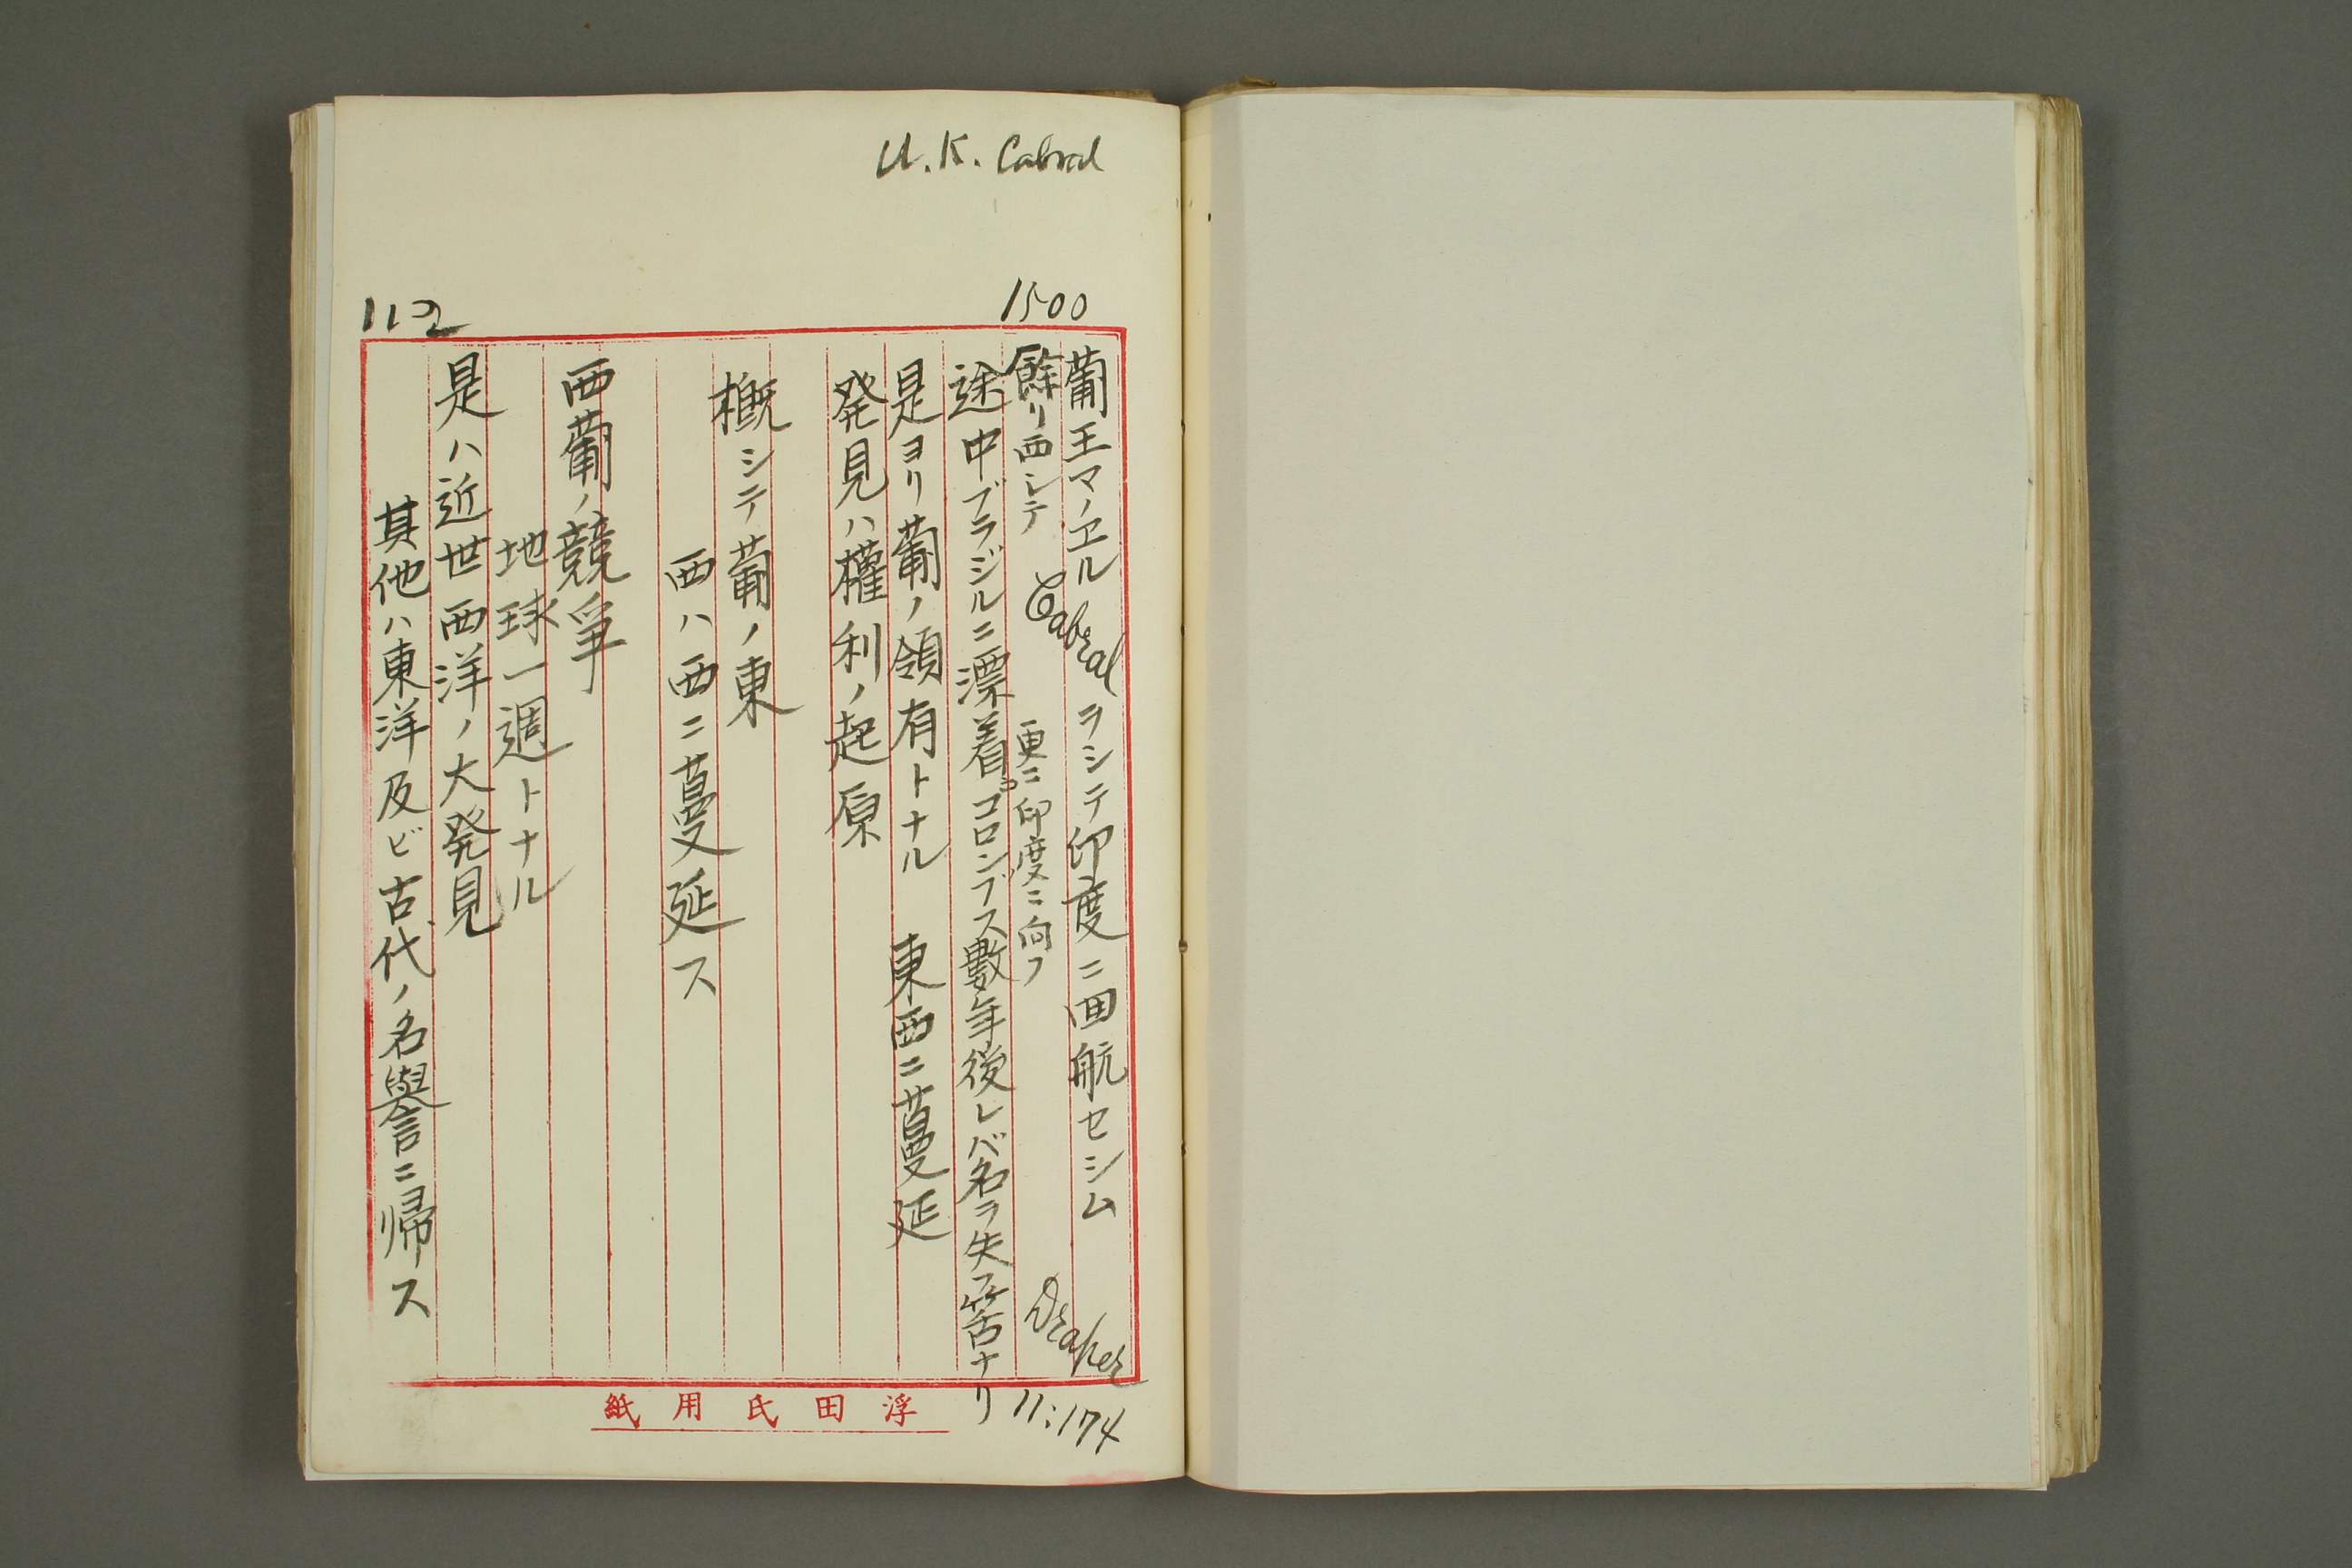 U.K. Cabral
1500
112
葡王マノエル Cabral ヲシテ印度ニ回航セシム
餘リ西シテ 更ニ印度ニ向フ Draper 11:174
途中ブラジルニ漂着ス コロンブス數年後レバ名ヲ失フ筈ナリ
是ヨリ葡ノ領有トナル 東西ニ蔓延
発見ハ權利ノ起原
概シテ葡ノ東
西ハ西ニ蔓延ス
西葡ノ競爭
地球一週トナル
是ハ近世西洋ノ大発見
其他ハ東洋及ビ古代ノ名譽ニ帰ス
浮田氏用紙